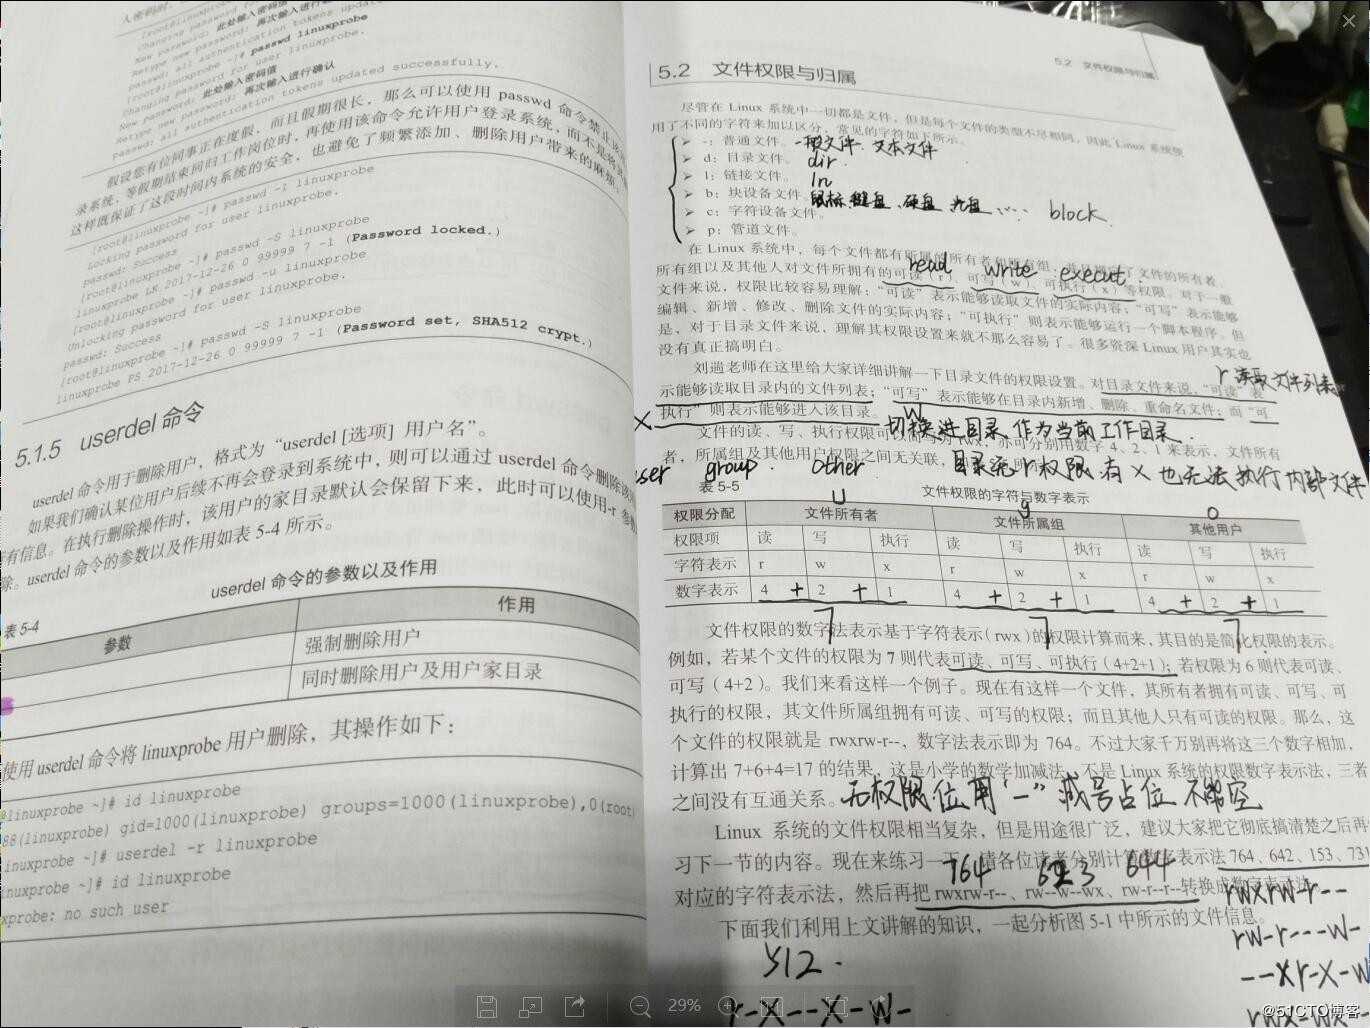 人密码时,
Changing password
New password: 此处输入密码值
Retype new password: 再次输入进行确认
passwd: all authentication tokens updated
[root@linuxprobe ~]# passwd linuxprobe
Changing password for user linuxprobe.
New password: 此处输入密码值
Retype new password: 再次输入进行确认
passwd: all authentication tokens updated successfully.
假设您有位同事正在度假,而且假期很长,那么可以使用 passwd 命令禁止该用户
录系统,等假期结束回归工作岗位时,再使用该命令允许用户登录系统,而不是将其
这样既保证了这段时间内系统的安全,也避免了频繁添加、删除用户带来的麻烦。
[root@linuxprobe ~]# passwd -l linuxprobe
Locking password for user linuxprobe.
passwd: Success
[root@linuxprobe ~]# passwd -S linuxprobe
linuxprobe LK 2017-12-26 0 99999 7 -1 (Password locked.)
[root@linuxprobe ~]# passwd -u linuxprobe
Unlocking password for user linuxprobe.
passwd: Success
[root@linuxprobe ~]# passwd -S linuxprobe
linuxprobe PS 2017-12-26 0 99999 7 -1 (Password set, SHA512 crypt.)
5.1.5 userdel 命令
userdel 命令用于删除用户,格式为“userdel [选项] 用户名”。
如果我们确认某位用户后续不再会登录到系统中,则可以通过 userdel 命令删除该
有信息。在执行删除操作时,该用户的家目录默认会保留下来,此时可以使用-r 参数
除。userdel 命令的参数以及作用如表 5-4 所示。
表 5-4 userdel 命令的参数以及作用
参数 作用
强制删除用户
同时删除用户及用户家目录
使用 userdel 命令将 linuxprobe 用户删除,其操作如下:
@linuxprobe ~]# id linuxprobe
88(linuxprobe) gid=1000(linuxprobe) groups=1000(linuxprobe),0(root)
linuxprobe ~]# userdel -r linuxprobe
inuxprobe ~]# id linuxprobe
xprobe: no such user
5.2 文件权限与归属
5.2 文件权限与归属
尽管在 Linux 系统中一切都是文件,但是每个文件的类型不尽相同,因此 Linux 系统使
用了不同的字符来加以区分,常见的字符如下所示。
➢ -:普通文件。 一般文件、文本文件
➢ d:目录文件。 dir.
➢ l:链接文件。 ln
➢ b:块设备文件。 鼠标、键盘、硬盘、光盘…… block
➢ c:字符设备文件。
➢ p:管道文件。
在 Linux 系统中,每个文件都有所属的所有者和所有组,并且规定了文件的所有者、
read write execut.
所有组以及其他人对文件所拥有的可读(r)、可写(w)、可执行(x)等权限。对于一般
文件来说,权限比较容易理解:“可读”表示能够读取文件的实际内容;“可写”表示能够
编辑、新增、修改、删除文件的实际内容;“可执行”则表示能够运行一个脚本程序。但
是,对于目录文件来说,理解其权限设置来就不那么容易了。很多资深 Linux 用户其实也
没有真正搞明白。
r 读取文件列表
刘遄老师在这里给大家详细讲解一下目录文件的权限设置。对目录文件来说,“可读”表
示能够读取目录内的文件列表;“可写”表示能够在目录内新增、删除、重命名文件;而“可
执行”则表示能够进入该目录。
x w 切换进目录 作为当前工作目录.
文件的读、写、执行权限可以简写为 rwx,亦可分别用数字 4、2、1 来表示,文件所有
者,所属组及其他用户权限之间无关联,
ser group. other 目录无 r 权限 有 x 也无法执行内部文件
表 5-5 文件权限的字符与数字表示
u g o
权限分配 文件所有者 文件所属组 其他用户
权限项 读 写 执行 读 写 执行 读 写 执行
字符表示 r w x r w x r w x
数字表示 4 + 2 + 1 4 + 2 + 1 4 + 2 + 1
7 7 7
文件权限的数字法表示基于字符表示(rwx)的权限计算而来,其目的是简化权限的表示。
例如,若某个文件的权限为 7 则代表可读、可写、可执行(4+2+1);若权限为 6 则代表可读、
可写(4+2)。我们来看这样一个例子。现在有这样一个文件,其所有者拥有可读、可写、可
执行的权限,其文件所属组拥有可读、可写的权限;而且其他人只有可读的权限。那么,这
个文件的权限就是 rwxrw-r--,数字法表示即为 764。不过大家千万别再将这三个数字相加,
计算出 7+6+4=17 的结果,这是小学的数学加减法,不是 Linux 系统的权限数字表示法,三者
之间没有互通关系。
无权限位用“-”减号占位 不能空
Linux 系统的文件权限相当复杂,但是用途很广泛,建议大家把它彻底搞清楚之后再
习下一节的内容。现在来练习一下,请各位读者分别计算数字表示法 764、642、153、731
764 623 644
对应的字符表示法,然后再把 rwxrw-r--、rw--w--wx、rw-r--r--转换成数字表示法
下面我们利用上文讲解的知识,一起分析图 5-1 中所示的文件信息。
rwxrw-r--
rw-r---w-
--xr-x-w
rwx-wx-
512.
r-x--x-w-
29%
@51CTO博客